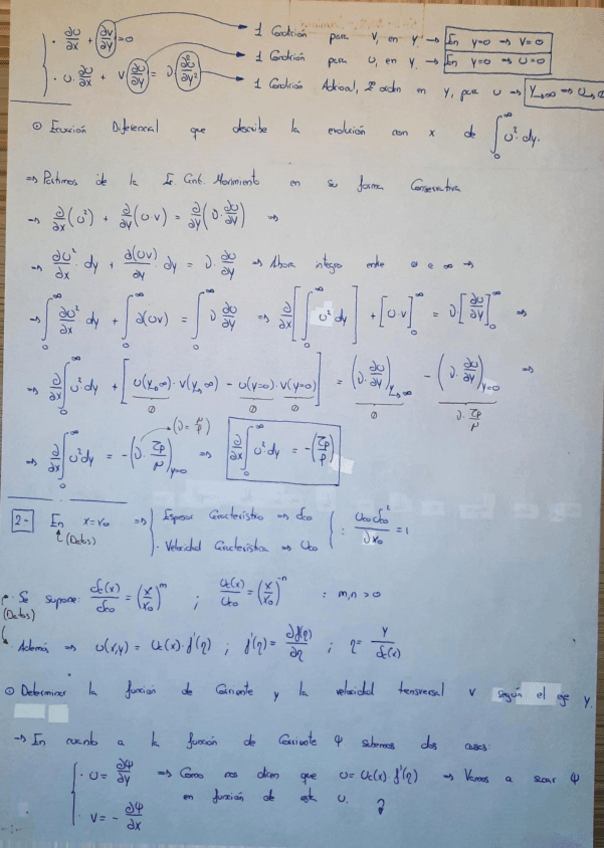 · ∂u/∂x + ∂v/∂y = 0 → 1 Condición para v, en y → En y=0 → v=0
· u·∂u/∂x + v ∂u/∂y = ν ∂²u/∂y² → 1 Condición para u, en y → En y=0 → u=0
→ 1 Condición Adicional, 2º orden en y, para u → y→∞ → u→
⊙ Ecuación Diferencial que describe la evolución con x de ∫₀^∞ u² dy.
⇒ Partimos de la Ec. Cant. Movimiento en su forma Conservativa
→ ∂/∂x (u²) + ∂/∂y (u·v) = ∂/∂y (ν ∂u/∂y) ⇒
→ ∂u²/∂x · dy + ∂(uv)/∂y · dy = ν · ∂u/∂y ⇒ Ahora integro entre 0 e ∞ →
→ ∫₀^∞ ∂u²/∂x dy + ∫₀^∞ ∂(uv) = ∫₀^∞ ν ∂u/∂y ⇒ ∂/∂x [∫₀^∞ u² dy] + [u·v]₀^∞ = ν [∂u/∂y]₀^∞ ⇒
⇒ ∂/∂x ∫₀^∞ u² dy + [u(y→∞)·v(y→∞) − u(y=0)·v(y=0)] = (ν·∂u/∂y)y→∞ − (ν·∂u/∂y)y=0 ⇒
∅ ∅ ∅ ∅ ν·τp/μ
⇒ ∂/∂x ∫₀^∞ u² dy = −(ν·τp/μ)y=0 (ν = μ/ρ) ⇒ ∂/∂x ∫₀^∞ u² dy = −(τp/ρ)
2- En x=x₀ ⇒ { · Espesor Característico → δc0
(Datos) · Velocidad Característica → Uc0 } : Uc0 δc0²/ν x₀ = 1
· Se supone: δc(x)/δc0 = (x/x₀)^m ; Uc(x)/Uc0 = (x/x₀)^-n : m,n > 0
(Datos)
Además ⇒ u(x,y) = Uc(x)·f'(η) ; f'(η) = ∂f(η)/∂η ; η = y/δc(x)
⊙ Determinar la función de Corriente y la velocidad transversal v según el eje y.
→ En cuanto a la función de Corriente ψ sabemos dos cosas:
· u = ∂ψ/∂y ⇒ Como nos dicen que u = Uc(x)·f'(η) → Vamos a sacar ψ
en función de este u.
· v = − ∂ψ/∂x